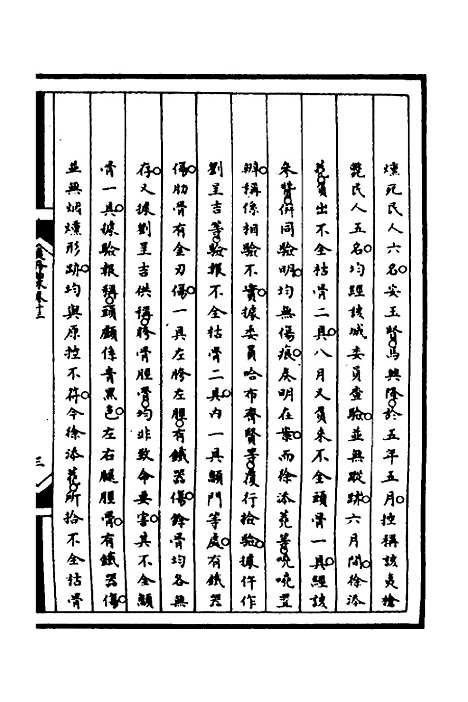 燻死民人六名安玉賢馬興隆於五年五月控稱該夷搶
斃民人五名均經該城委員查驗並無蹤跡六月間徐添
苑負出不全枯骨二具八月又負來不全頭骨一具經該
朱贊併同驗明均無傷痕奏明在案而徐添苑等哓哓置
辦稱係相驗不實據委員哈布齊賢等覆行檢驗據仵作
劉呈吉等驗報不全枯骨二具內一具顖門等處有鐵器
傷肋骨有金刃傷一具左胯左腿有鐵器傷餘骨均各無
存又據劉呈吉供稱胯骨腿骨均非致命要害其不全顖
骨一具據驗報稱頭顱係青黑色左右腿脛骨有鐵器傷
並無烟燻形跡均與原控不符今徐添苑所拾不全枯骨
三